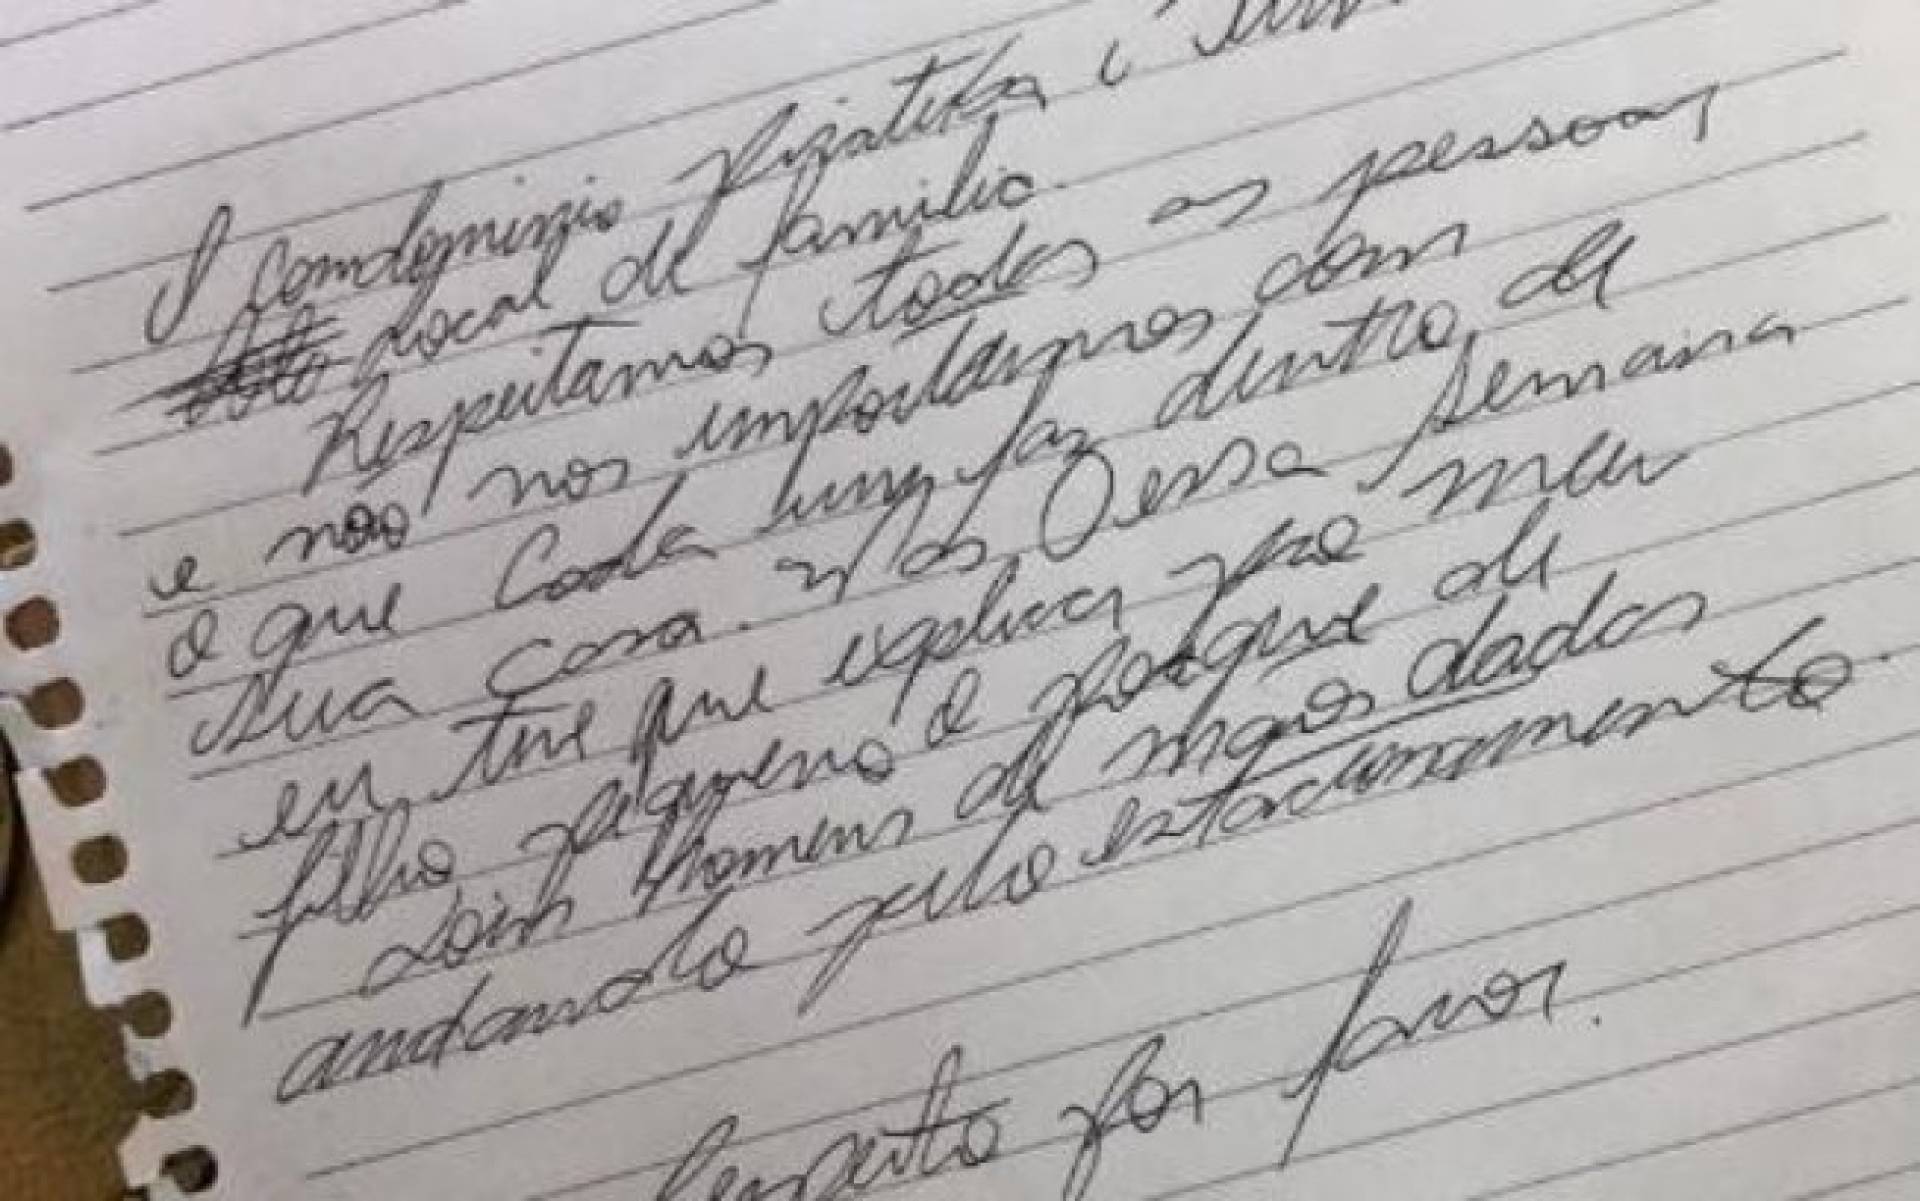 O Condominio Piratika é um
Local de familia.
Respeitamos todos as pessoas
e não nos importamos com
o que Cada um faz dentro de
sua casa. Mas essa semana
eu tive que explicar pro meu
filho pequeno o porque de
dois homens de mãos dadas
andando pelo estacionamento.
Respeito por favor.